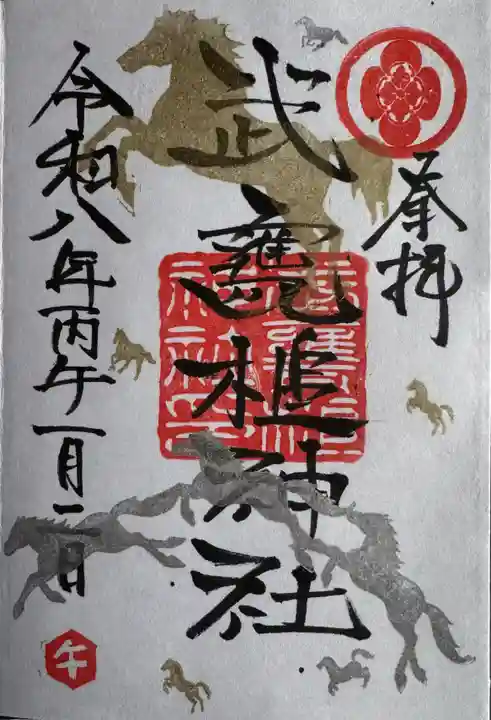 奉拝
武甕槌神社
令和八年丙午一月二日
午